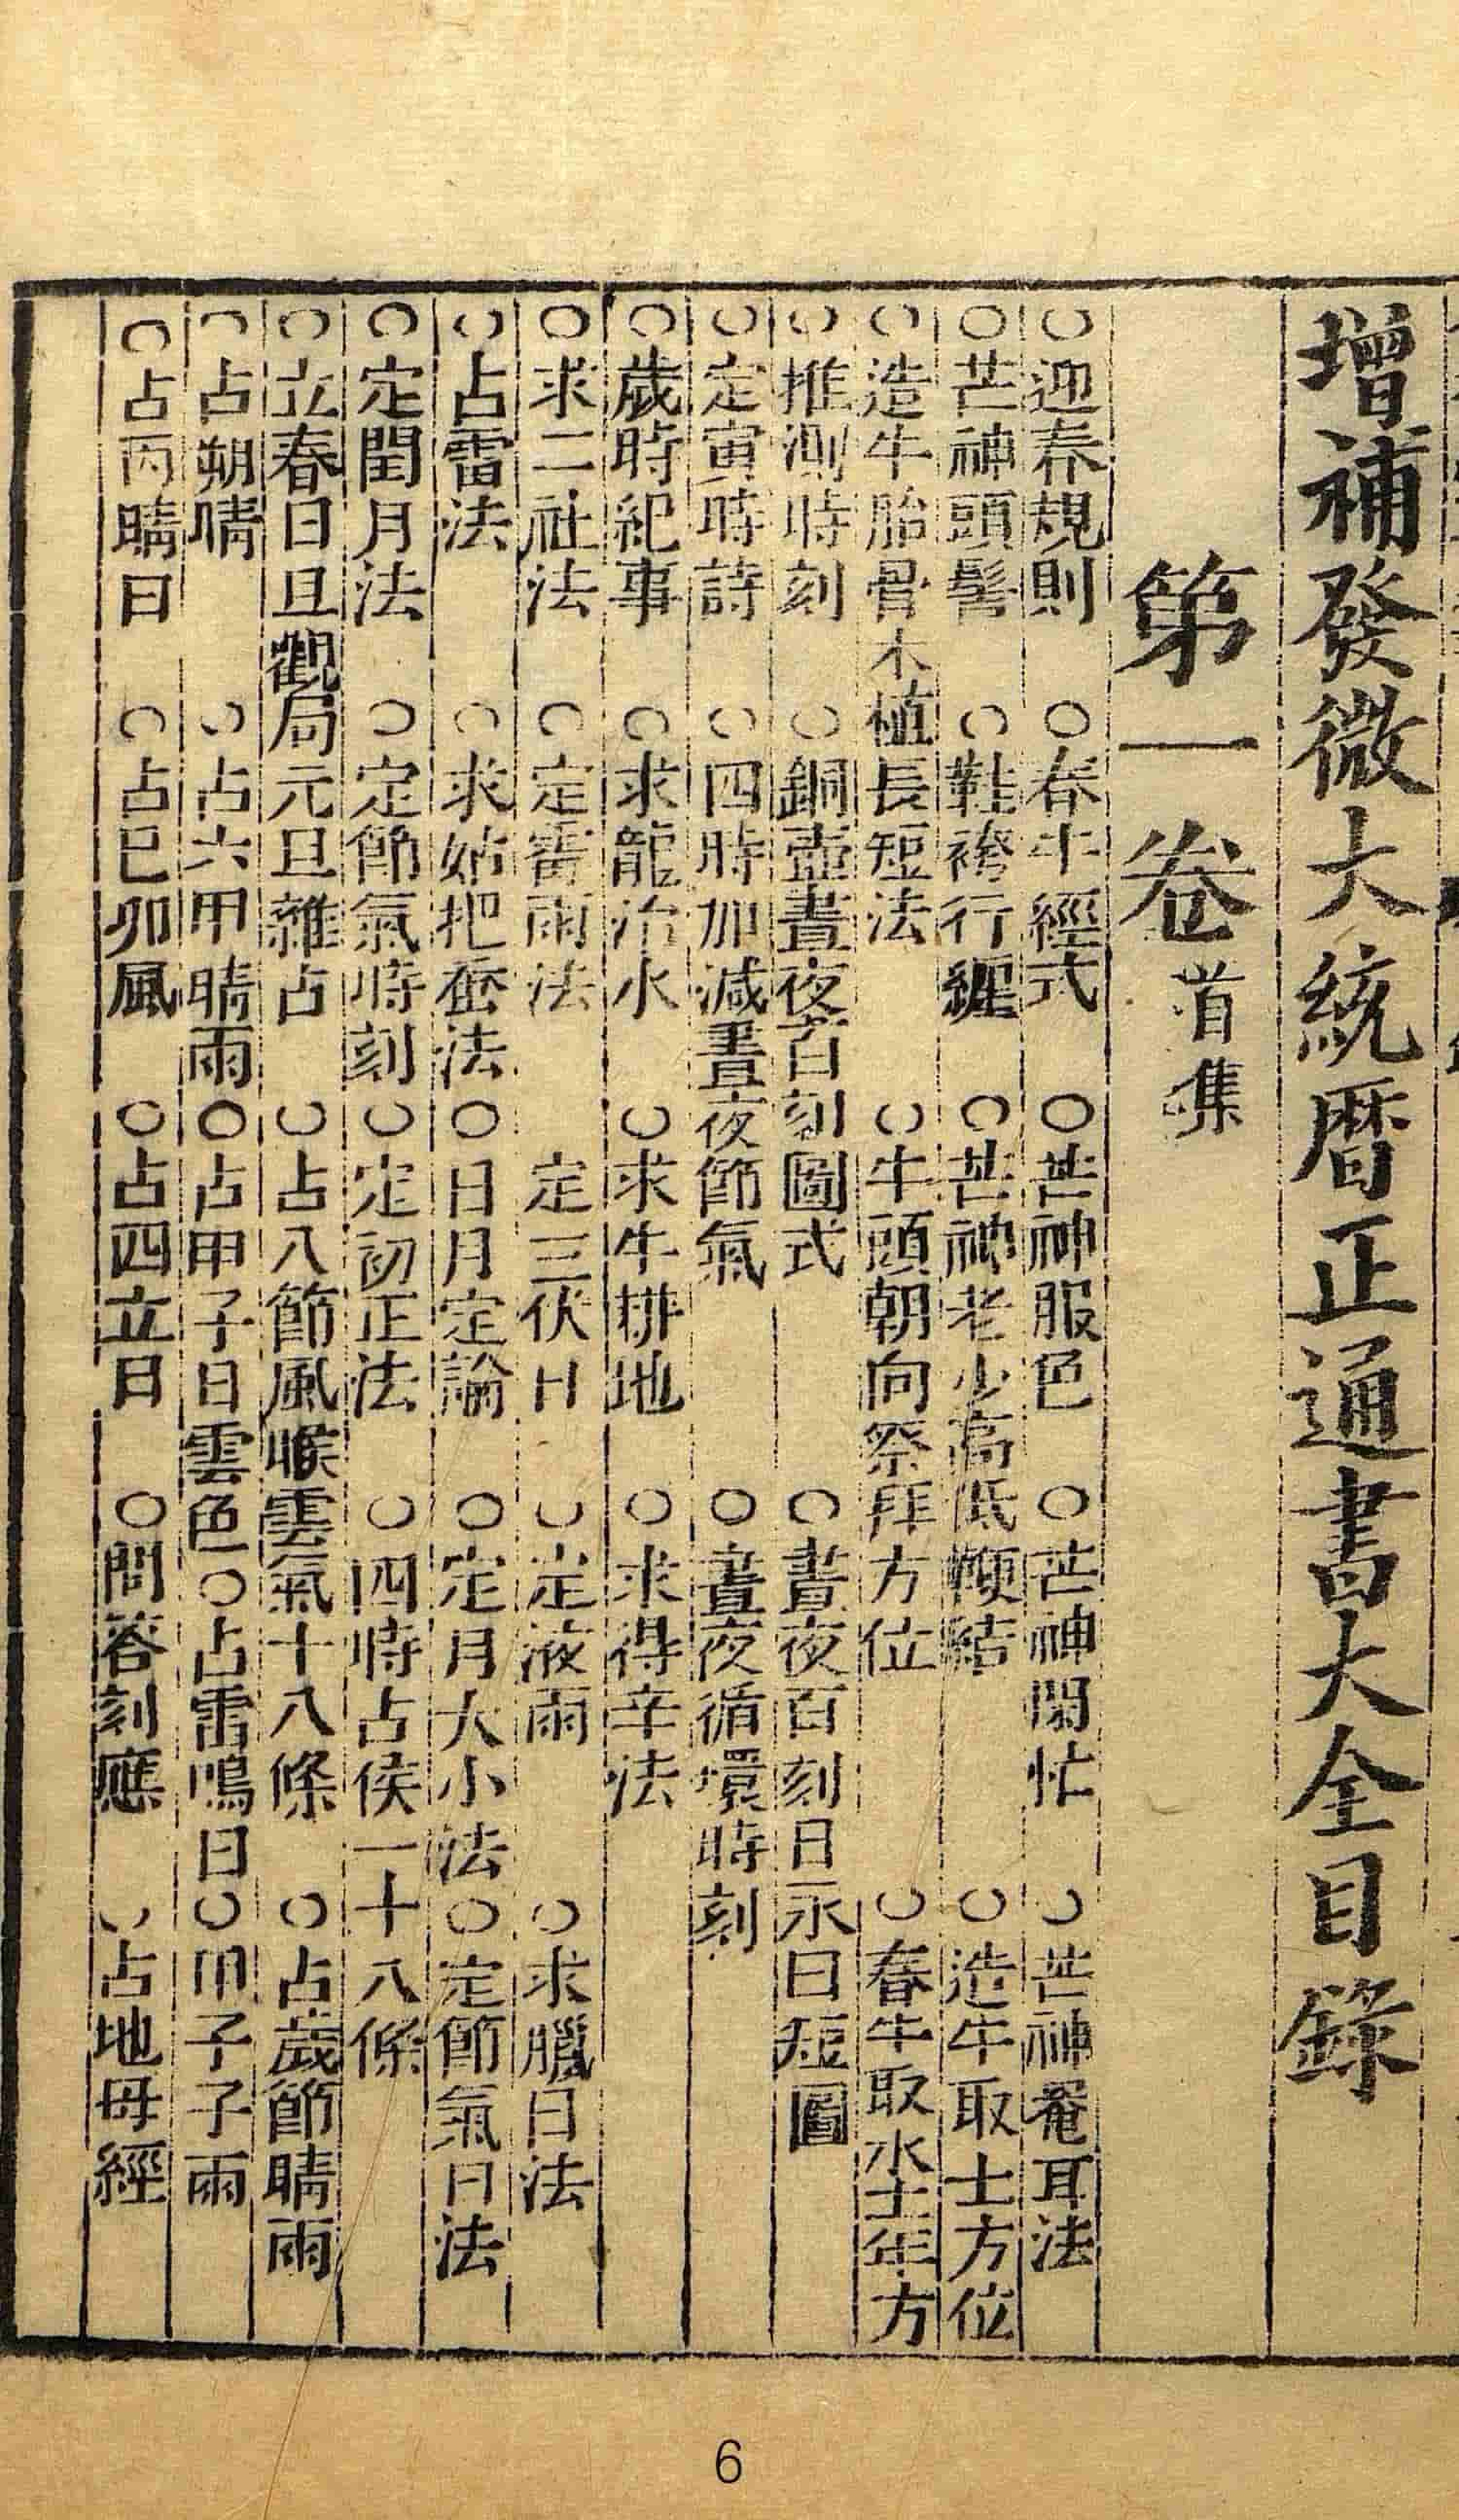 增補發微大統曆正通書大全目錄
第一卷 首集
○迎春規則 ○春牛經式 ○芒神服色 ○芒神閑忙 ○芒神罨耳法
○芒神頭髻 ○鞋袴行纏 ○芒神老少高低鞭結 ○造牛取土方位
○造牛胎骨木植長短法 ○牛頭朝向祭拜方位 ○春牛取水土年方
○推測時刻 ○銅壺晝夜百刻圖式 ○晝夜百刻日永日短圖
○定寅時詩 ○四時加減晝夜節氣 ○晝夜循環時刻
○歲時紀事 ○求龍治水 ○求牛耕地 ○求得辛法
○求二社法 ○定霉雨法 定三伏日 ○定液雨 ○求臘日法
○占雷法 ○求姑把蚕法 ○日月定論 ○定月大小法 ○定節氣日法
○定閏月法 ○定節氣時刻 ○定初正法 ○四時占侯一十八條
○立春日且觀局元旦雜占 ○占八節風候雲氣十八條 ○占歲節晴雨
○占朔晴 ○占六甲晴雨 ○占甲子日雲色 ○占雷鳴日 ○甲子子雨
○占丙晴日 ○占巳卯風 ○占四立日 ○問答刻應 ○占地母經
6